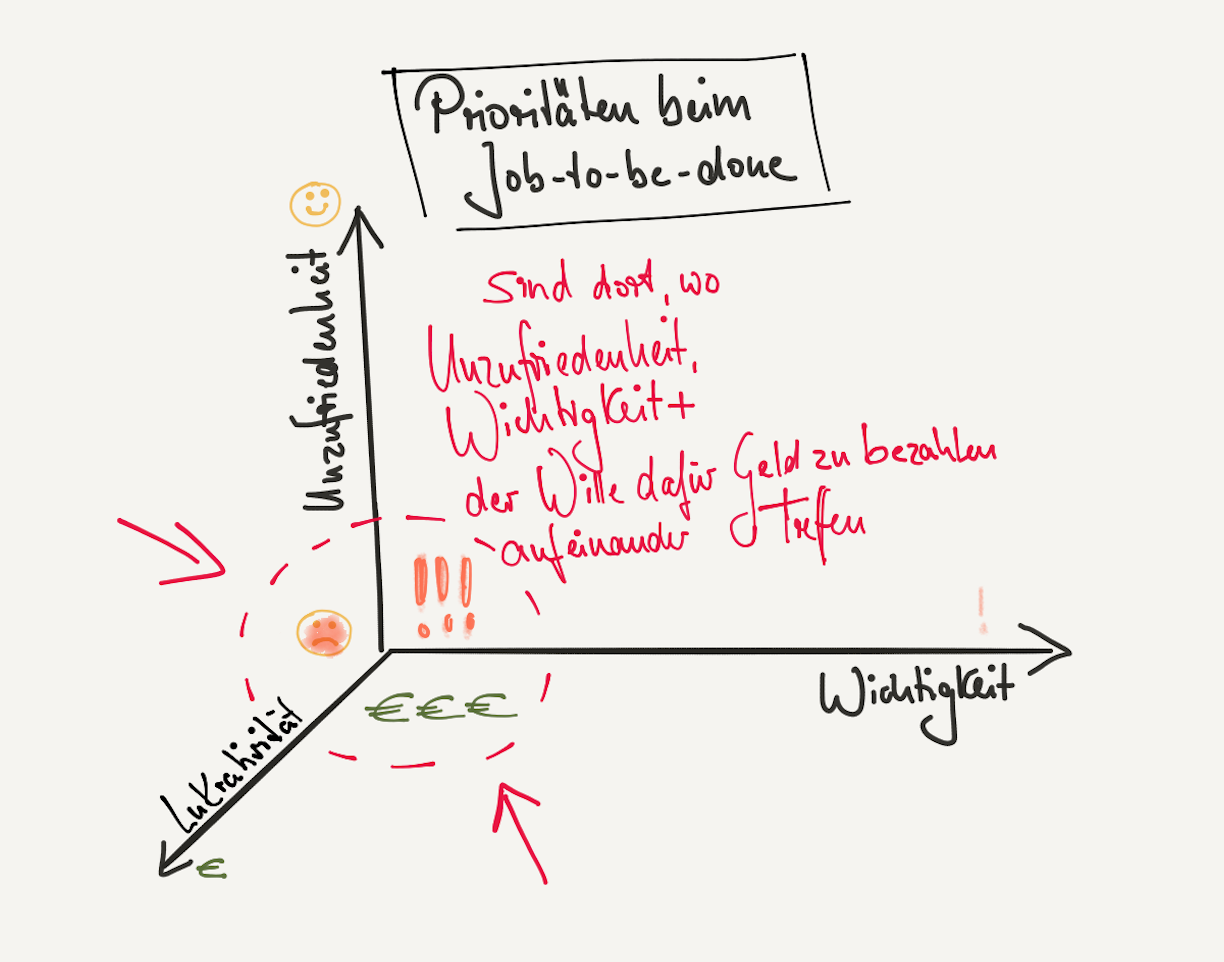 Prioritäten beim
Job-to-be-done
Sind dort, wo
Unzufriedenheit,
Wichtigkeit +
der Wille dafür Geld zu bezahlen
aufeinander treffen
Unzufriedenheit
!!!
!
Wichtigkeit
€€€
Lukrativität
€